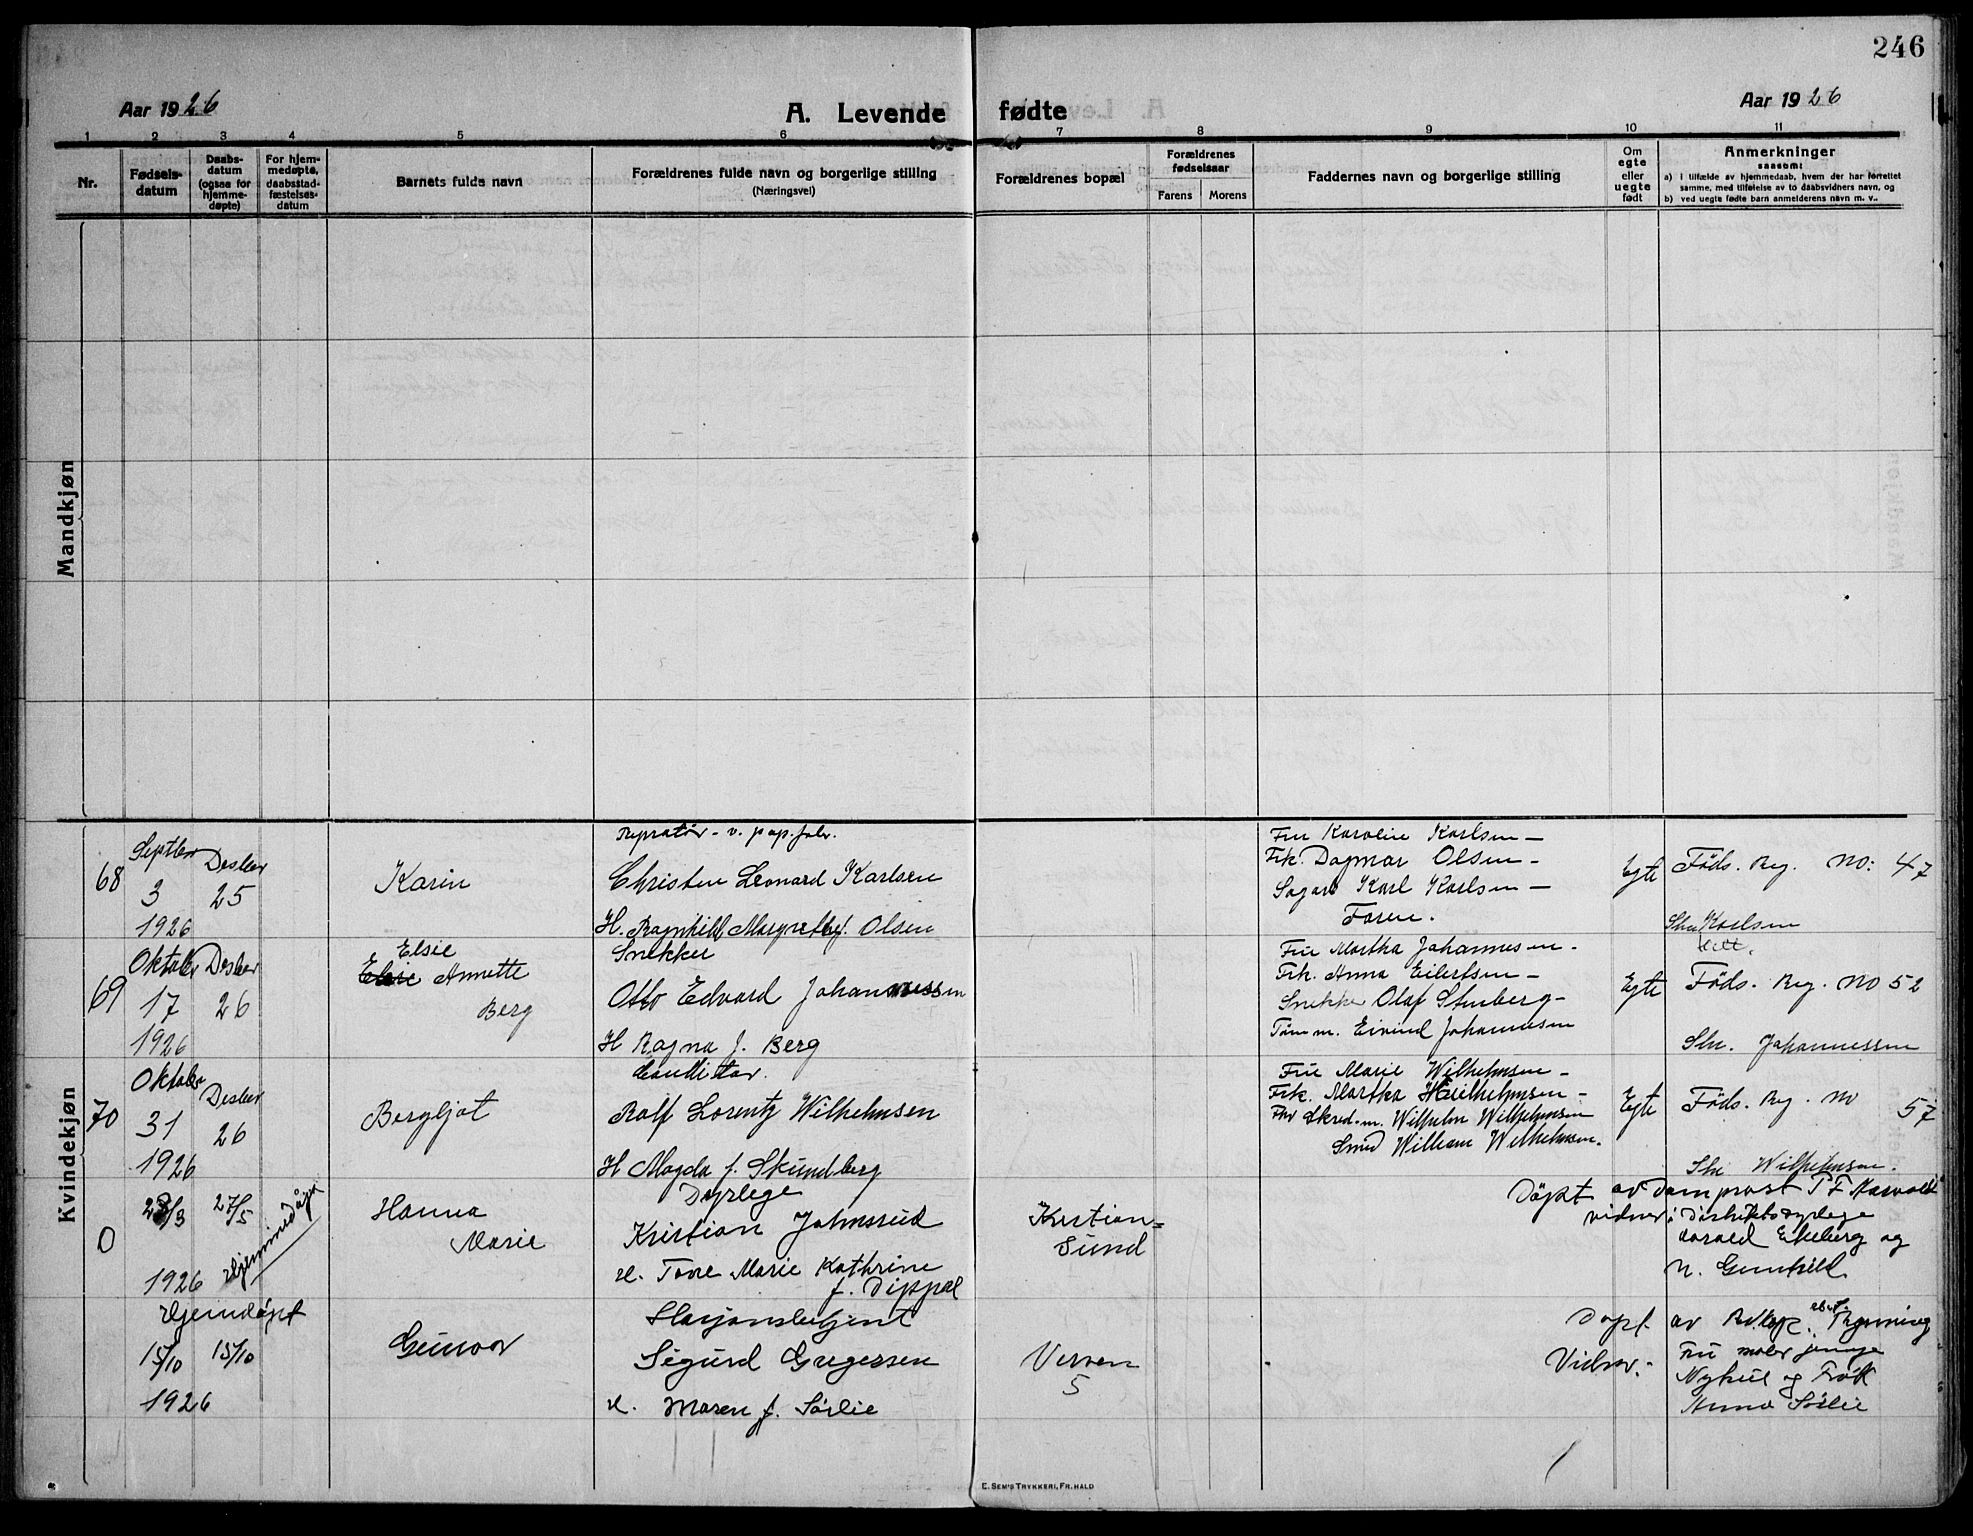 246
Aar 1926
A. Levende fødte
Aar 1926
1 2 3 4 5 6 7 8 9 10 11
Nr.
Fødsels-
datum
Daabs-
datum
(ogsaa for
hjemme-
døpte)
For hjem-
medøpte,
daabsstad-
fæstelses-
datum
Barnets fulde navn
Forældrenes fulde navn og borgerlige stilling
(Næringsvei)
Forældrenes bopæl
Forældrenes
fødselsaar
Farens Morens
Faddernes navn og borgerlige stilling
Om
egte
eller
uegte
født
Anmerkninger
saasom:
a) i tilfælde av hjemmedaab, hvem der har forrettet
samme, med tilføielse av to daabsvidners navn, og
b) ved uegte fødte barn anmelderens navn m. v..
Mandkjøn
Kvindekjøn
68
Septbr
3
1926
Desbr
25
Karin
v. pap. fabr.
Christen Leonard Karlsen
H. Ragnhild Margrethe f. Olsen
Fru Karoline Karlsen –
Frk. Dagmar Olsen –
Karl Karlsen –
Faren.
Egte
Føds. Reg. No: 47
Karlsen
69
Oktober
17
1926
Desbr
26
Elsie
Annette
Berg
Snekker
Otto Edvard Johannessen
H Ragna f. Berg
Fru Martha Johannesen –
Frk. Anna Eilertsen –
Snekker Olaf Stuberg –
Tømm. Eivind Johannesen
Egte
Føds. Reg. No 52
Johannessen
70
Oktober
31
1926
Desbr
26
Bergljot
Rolf Lorentz Wilhelmsen
H Magda f. Skundberg
Fru Marie Wilhelmsen –
Frk. Martha Wilhelmsen –
Skred.m. Wilhelm Wilhelmsen
Smed William Wilhelmsen.
Egte
Føds. Reg. No 57
Wilhelmsen.
0
28/3
1926
27/5
Hjemmedøpt
Hanna
Marie
Dyrlege
Kristian Johnsrud
H. Tove Marie Kathrine
f. Dippel
Kristian=
sund
Døpt av Domprost
vidner: Distriktsdyrlege
Harald Ekeberg og
N. Gunhild
Hjemdøpt
15/10
1926
15/10
Gunvor
Sigurd Gregersen
H. Maren f. Sørlie
Verven
5
Døpt av
Vidner:
Fru
og Frøk
Anna Sørlie
E. SEM'S TRYKKERI, FR.HALD